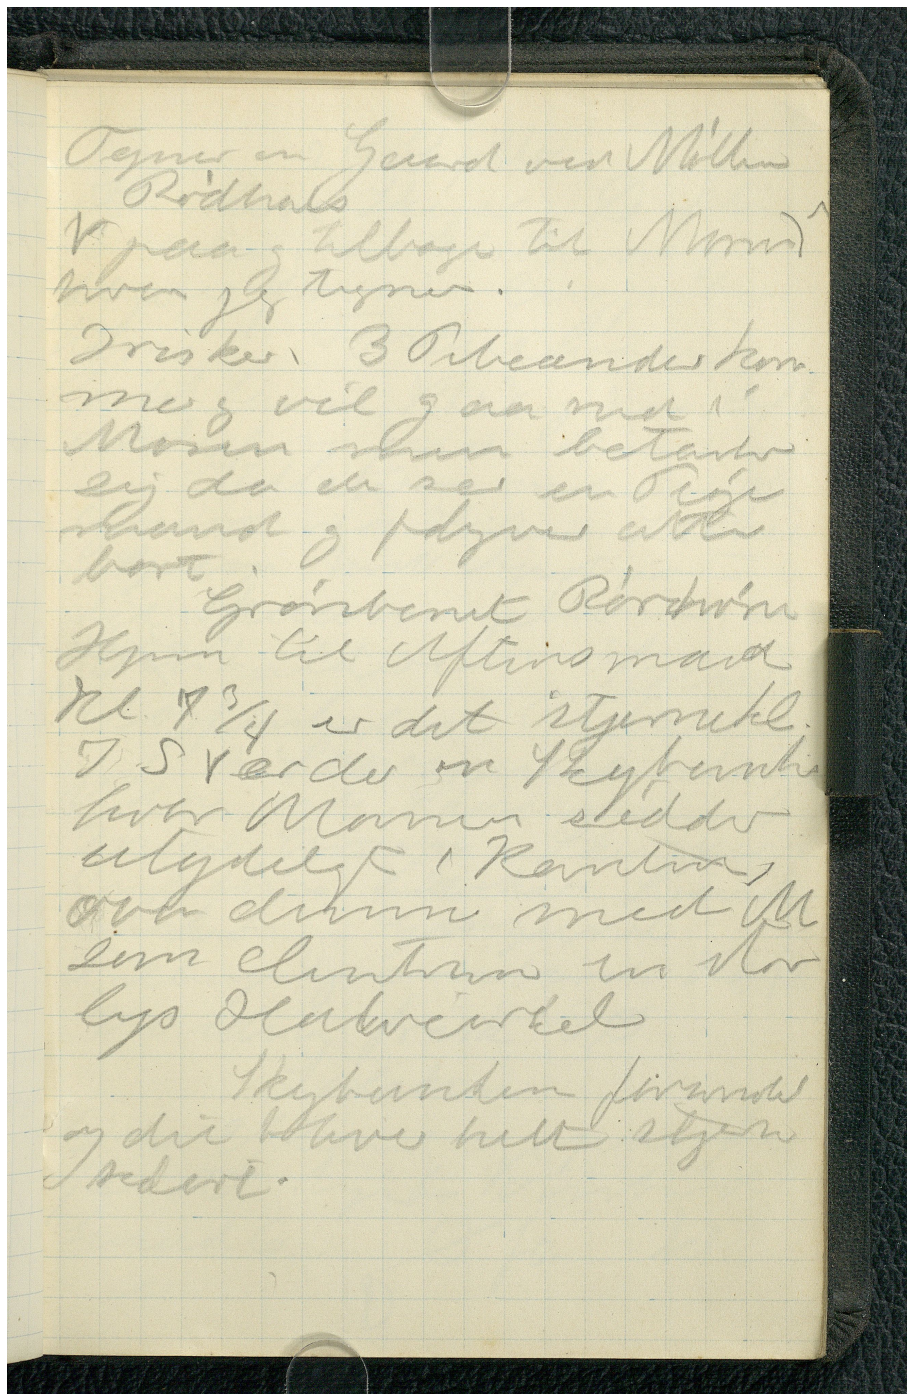 Tegner en Gaard ved Møllen
Rødhals
V paa og tilbage til Mosen
hvor jeg tegner.
Irisker. 3 Pibeænder kom-
mer og vil gaa ned i
Mosen men betænker
sig da de ser en Pige
 og flyver atter
bort.
Grønbenet Rørhøne
Hjem til Aftensmad
Kl 7 3/4 er det stjerneklart
I SV er der en Skybanke
hvor Maanen sidder
utydeligt i Kanten,
over denne med M
som Centrum en stor
lys Halvcirkel
Skybanken forsvandt
og det bliver helt stjerne